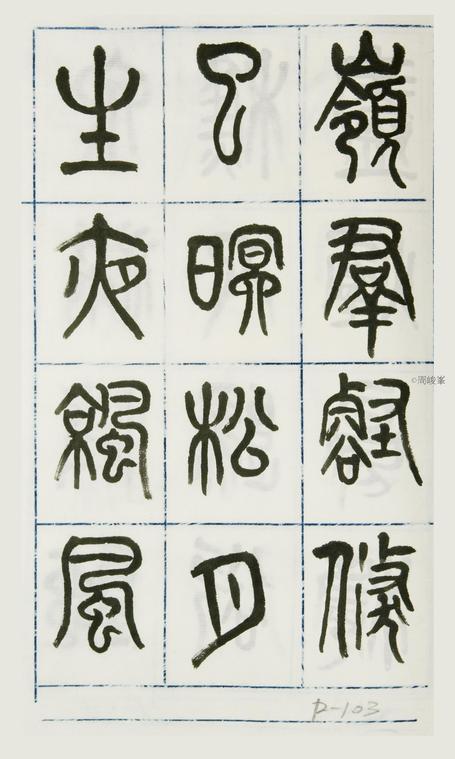 嶺羣壑倏
已暝松月
生夜涼風
©周峻峯
P-103